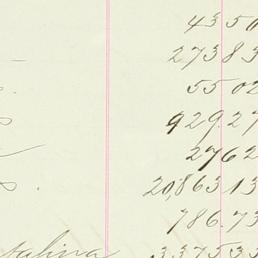 4350
27383
5502
929.27
2762
20,863.13
786.73
talina 3.37533